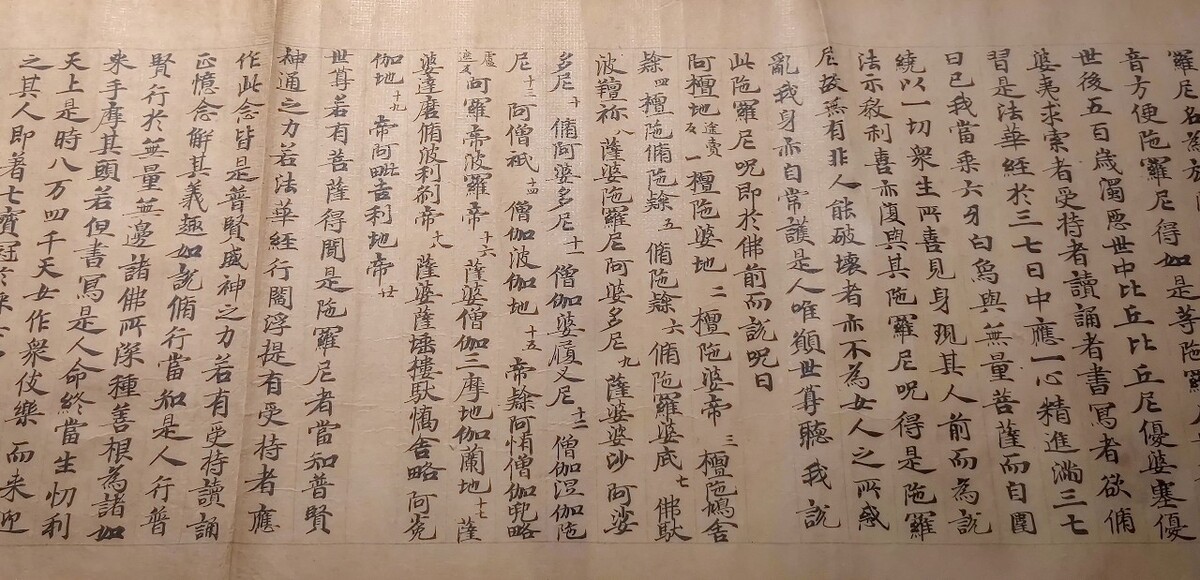 羅尼名為旋
音方便陁羅尼得如是等陁羅
世後五百歲濁惡世中比丘比丘尼優婆塞優
婆夷求索者受持者讀誦者書寫者欲脩
習是法華經於三七日中應一心精進滿三七
日已我當乘六牙白鳥與無量菩薩而自圍
繞以一切衆生所喜見身現其人前而為說
法示教利喜亦復與其陁羅尼呪得是陁羅
尼故無有非人能破壞者亦不為女人之所惑
亂我身亦自常護是人唯願世尊聽我說
此陁羅尼呪即於佛前而說呪曰
阿檀地途賣反一檀陁婆地二檀陁婆帝三檀陁鳩舍
隸四檀陁脩陁隸五脩陁隸六脩陁羅婆底七佛馱
波羶祢八薩婆陁羅尼阿婆多尼九薩婆婆沙阿婆
多尼十脩阿婆多尼十一僧伽婆履叉尼十二僧伽涅伽陁
尼十三阿僧祇十四僧伽波伽地十五帝隸阿惰僧伽兜略
盧遮反阿羅帝波羅帝十六薩婆僧伽三摩地伽蘭地十七薩
婆達磨脩波利剎帝十八薩婆薩埵樓馱憍舍略阿㝹
伽地十九帝阿毗吉利地帝廿
世尊若有菩薩得聞是陁羅尼者當知普賢
神通之力若法華經行閻浮提有受持者應
作此念皆是普賢威神之力若有受持讀誦
正憶念解其義趣如說脩行當知是人行普
賢行於無量無邊諸佛所深種善根為諸如
来手摩其頭若但書寫是人命終當生忉利
天上是時八万四千天女作衆伎樂而来迎
之其人即著七寶冠於采女